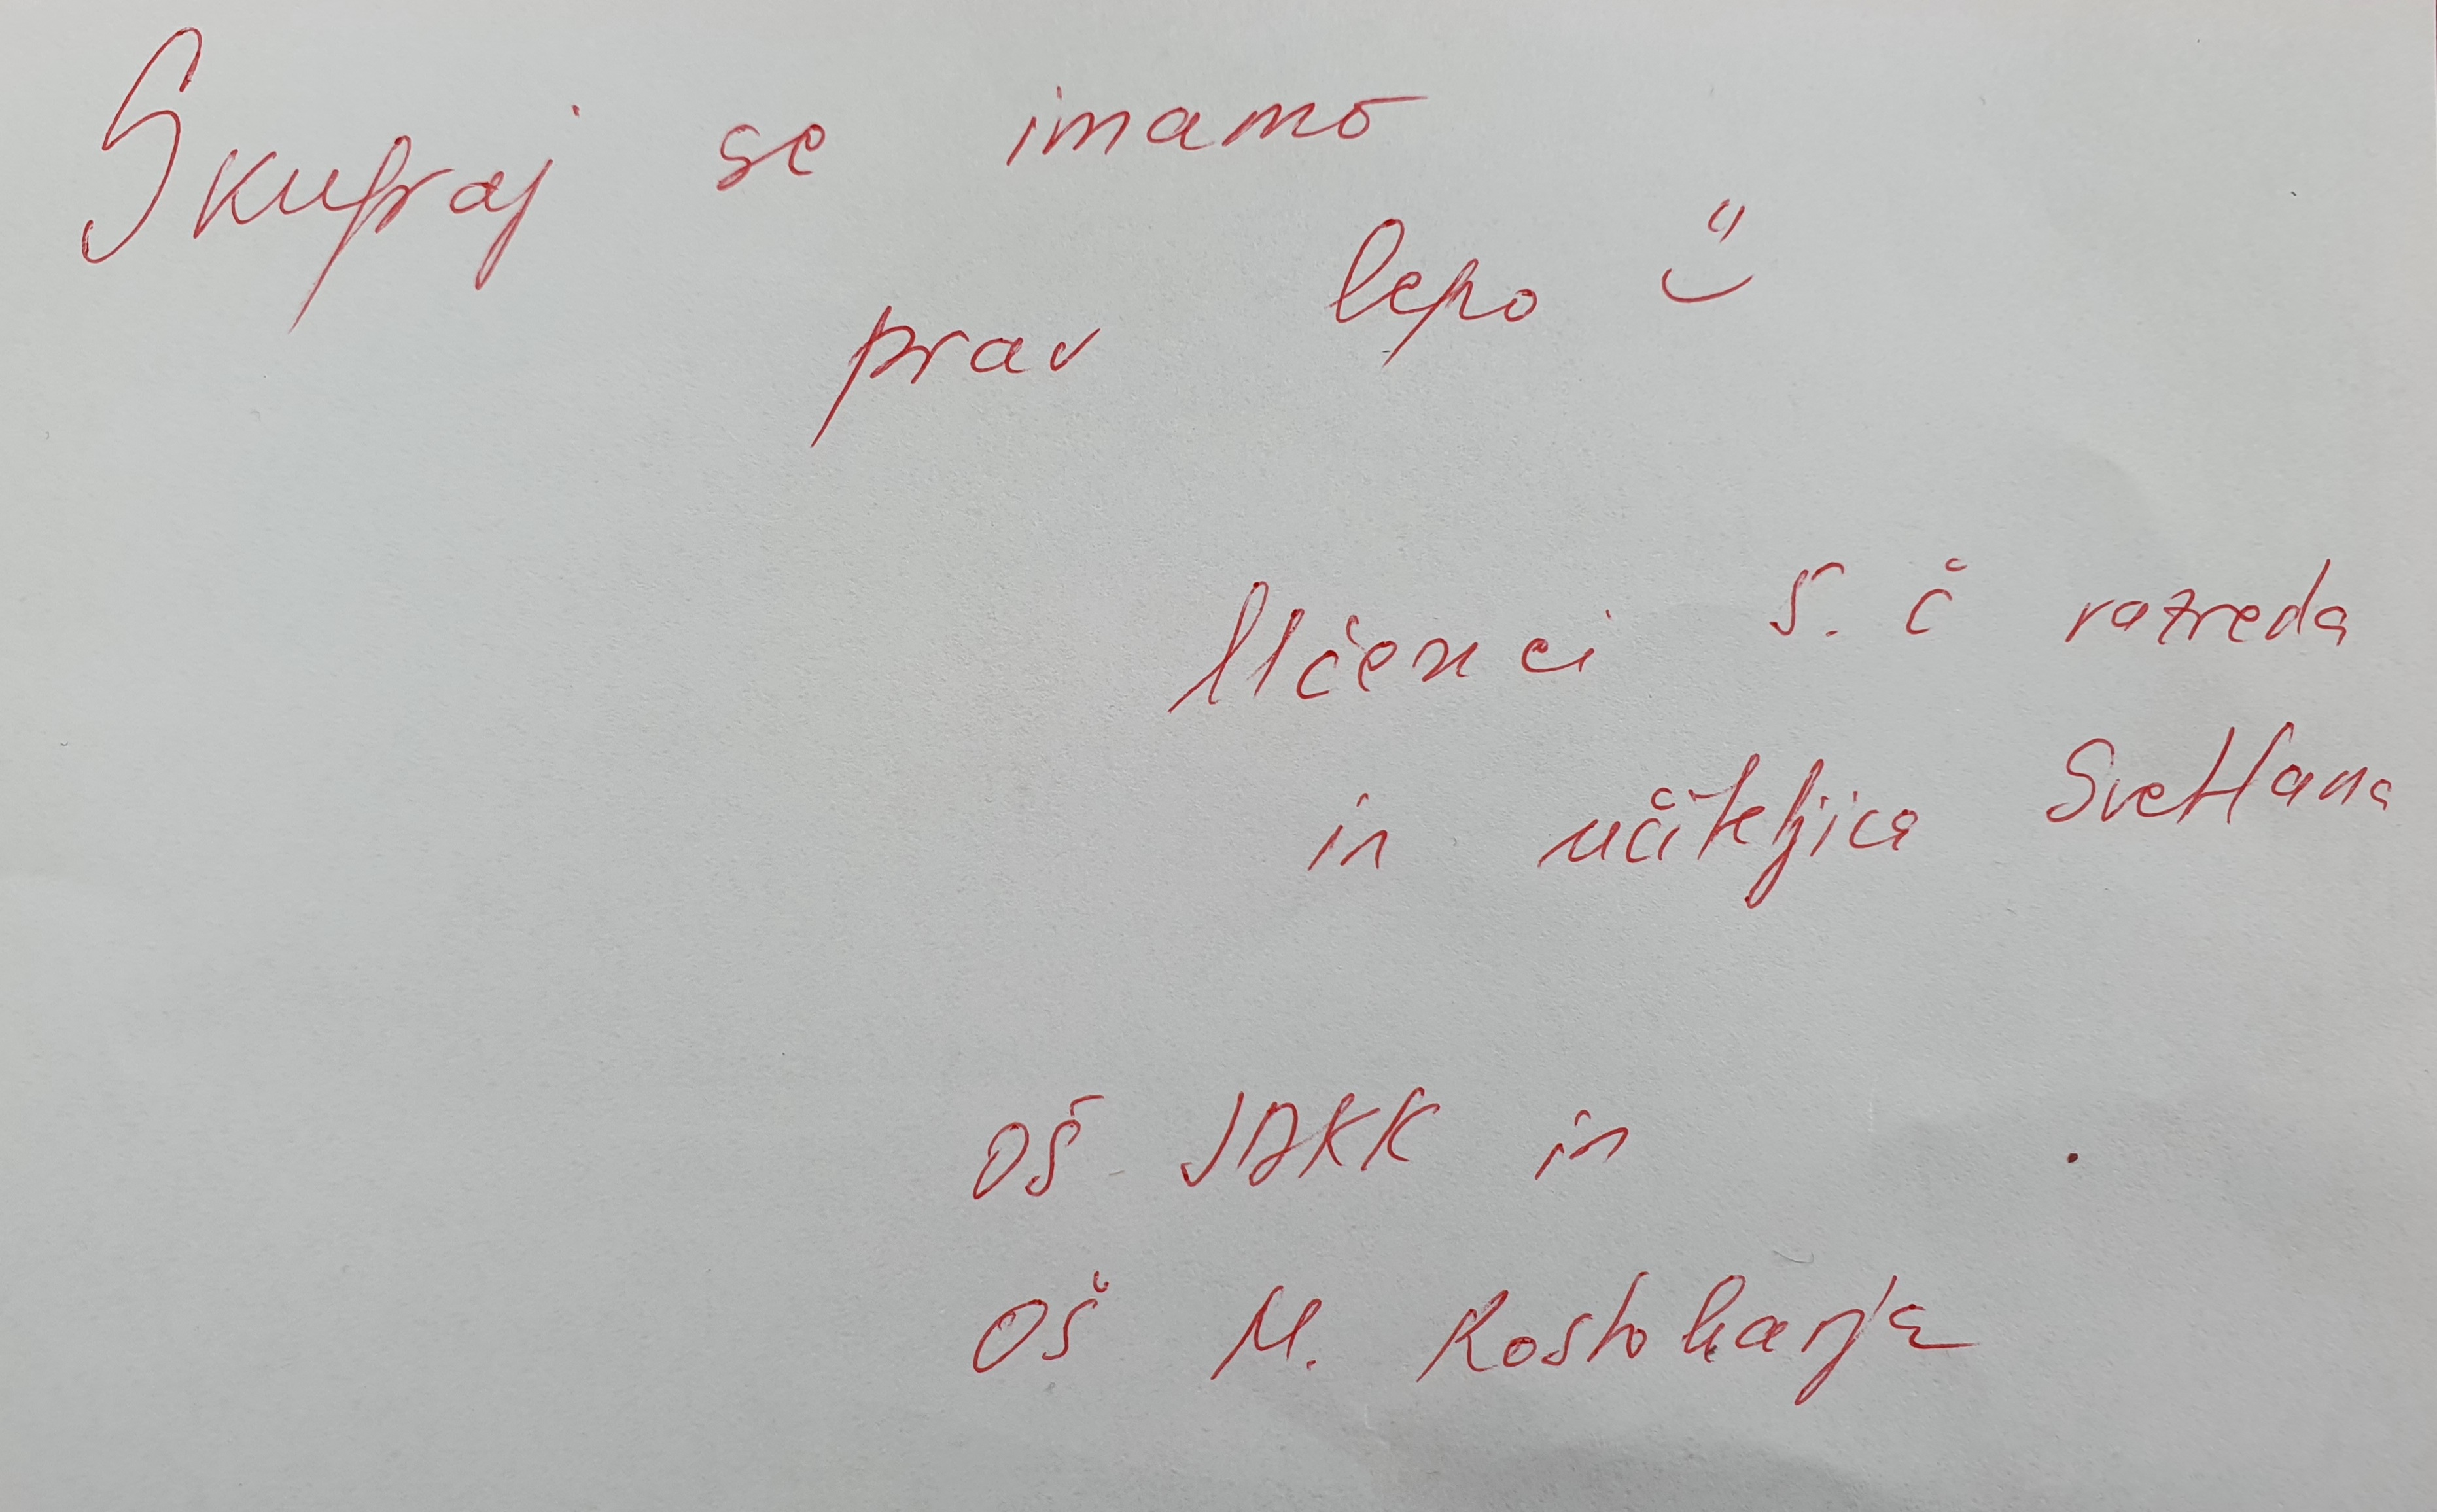 Skupaj se imamo
prav lepo :)
Učenci 5. č razreda
in učiteljica Svetlana
OŠ JAKK in
OŠ M. Kostoharja